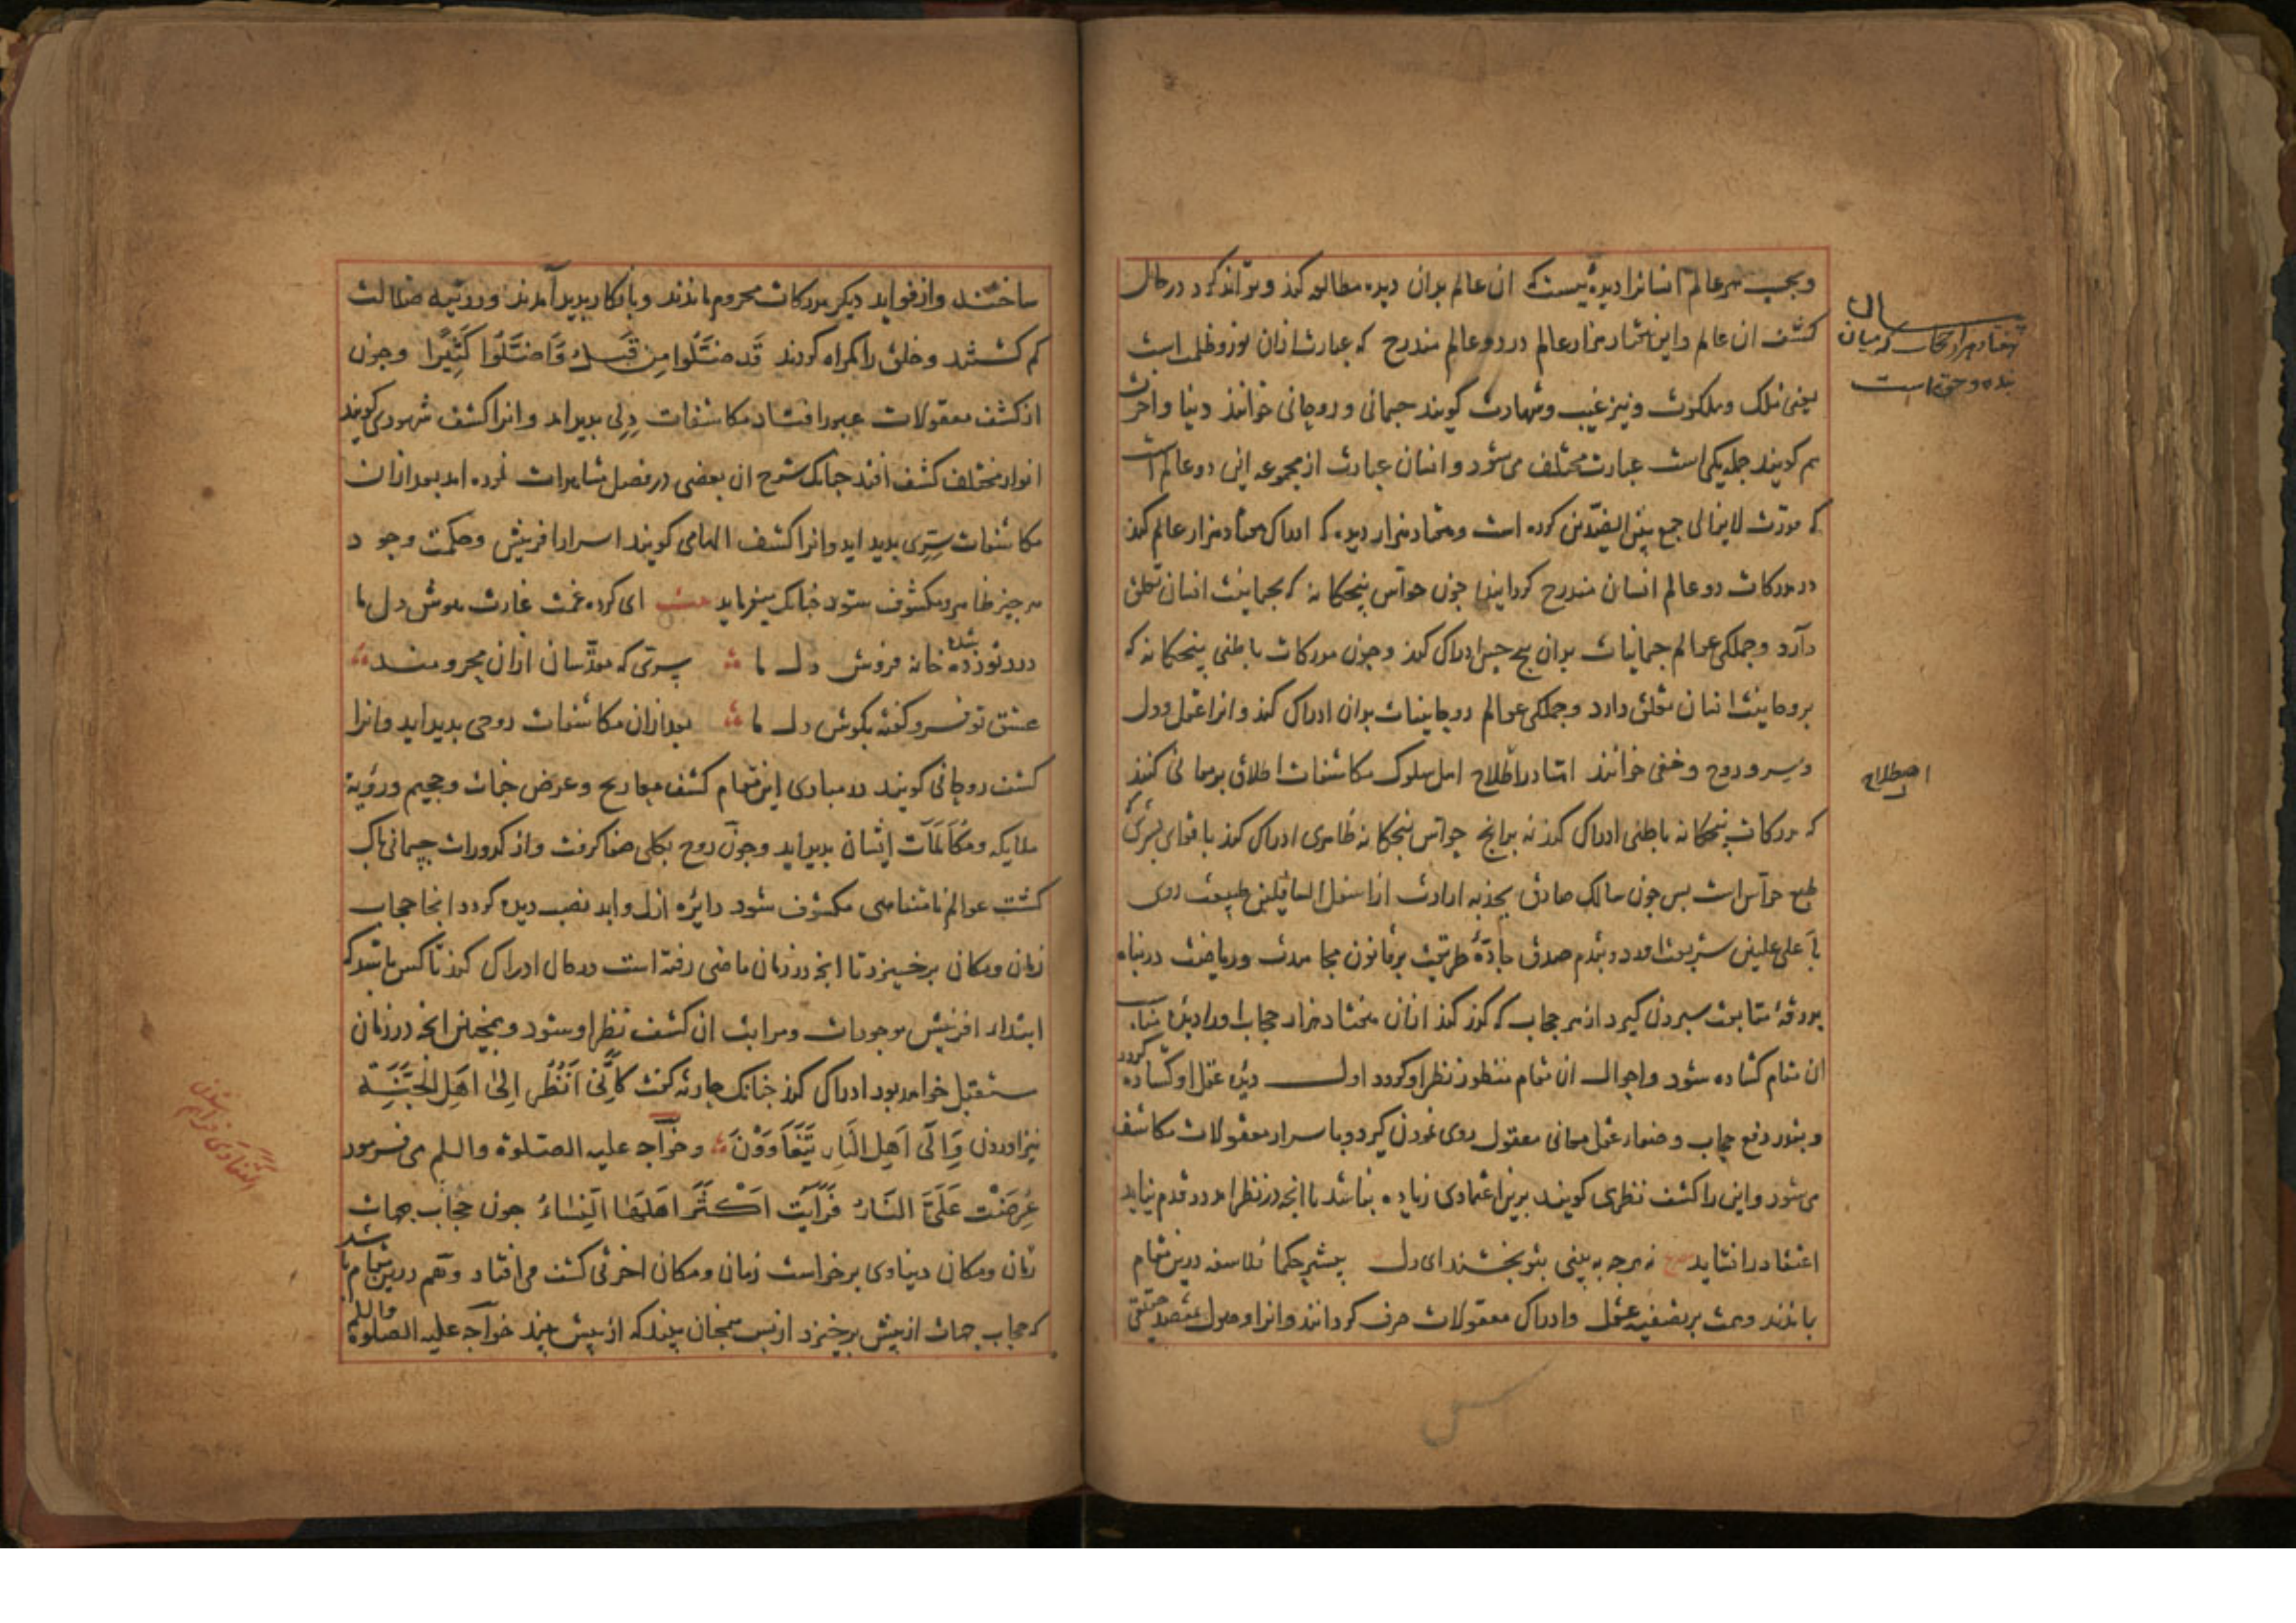 وبحسب هر عالم انسانرا دیدهٔ بیست که ان عالم بدان دیده مطالعه کند و تواند کرد در حال
کشف ان عالم واین هفتاد هزار عالم در دو عالم مندرج که عبارت ازان نور وظلمت است
یعنی ملک وملکوت ونیز غیب وشهادت گویند جسمانی وروحانی خوانند دنیا واخرت
هم گویند جمله یکی است عبارت مختلف می شود وانسان عبارت از مجموعه این دو عالم است
که قدرت لایزالی جمع بین الضدین کرده است وهفتاد هزار دیده که ادراک هفتاد هزار عالم کند
در مدرکات دو عالم انسان مندرج گردانید چون حواس پنجکانه که بجسمانیت انسان تعلق
دارد وجملکی عوالم جسمانیات بدان پنج حس ادراک کند وچون مدرکات باطنی پنجکانه که
بروحانیت انسان تعلق دارد وجملکی عوالم روحانیات بدان ادراک کند وانرا عقل ودل
وسر وروح وخفی خوانند اما در اطلاح اهل سلوک مکاشفات اطلاق بر معانی کنند
که مدرکات پنجکانه باطنی ادراک کند نه برانچ حواس پنجکانه ظاهری ادراک کند با قوای بشری
طبع حواس است بس چون سالک صادق بجذبه ارادت از اسفل السافلین طبیعت روی
باعلی علیین شریعت اورد وبقدم صدق جادهٔ طریقت بر قانون مجاهدت وریاضت در پناه
بدرقهٔ متابعت سپردن گیرد از هر حجاب که گذر کند ازان هفتاد هزار حجاب اورا دیدهٔ مناسب
ان مقام گشاده شود واحوال ان مقام منظور نظر او گردد اول دیدهٔ عقل او گشاده گردد
وبقدر رفع حجاب وصفاء عقل معانی معقول روی نمودن گیرد وباسرار معقولات مکاشف
می شود واین را کشف نظری گویند برین اعتمادی زیاده نباشد تا انچه در نظر امد در قدم نیاید
اعتماد را نشاید نه هرچه به بینی بتو بخشند ای دل بیشتر حکما فلاسفه درین مقام
بماندند وهمت بر تصفیه عقل وادراک معقولات صرف گردانند وانرا وصول مقصد حقیقی
هفتاد هزار حجاب که میان
بنده وحق است
اصطلاح
ساختند واز فواید دیگر مدرکات محروم ماندند وبانکار پدید آمدند ودر تیه ضلالت
کم گشتند وخلق را گمراه کردند قَد ضَلُّوا مِن قَبل وَاَضَلُّوا کَثِیرًا وچون
از کشف معقولات عبور افتاد مکاشفات دلی پدید اید وانرا کشف شهودی گویند
انوار مختلف کشف افتد چنانک شرح ان بعضی در فصل مشاهدات نموده امد بعد ازان
مکاشفات سِرّی پدید اید وانرا کشف الهامی گویند اسرار افرینش وحکمت وجود
هر چیز ظاهر ومکشوف شود چنانک میفرماید ای کرده غمت غارت هوش دل ما
درد تو زده خانه فروش دل ما سری که مقدسان ازان محرومند
عشق تو فرو کفته بکوش دل ما بعد ازان مکاشفات روحی پدید اید وانرا
کشف روحانی گویند در مبادی این مقام کشف معاریج وعرض جنات وجحیم ورؤیة
ملایکه ومکالمات ایشان پدید اید وچون روح بکلی صفا گرفت واز کدورات جسمانی پاک
کشت عوالم نامتناهی مکشوف شود دایرهٔ ازل وابد نصب دیده گردد اینجا حجاب
زمان ومکان برخیزد تا انچه در زمان ماضی رفته است در حال ادراک کند تا کس باشد که
ابتداء افرینش موجودات ومراتب ان کشف نظر او شود وهمچنین انچه در زمان
مستقبل خواهد بود ادراک کند چنانک حارثه گفت کَاَنّی اَنظُرُ اِلیٰ اَهلِ الجَنَّةِ
یتزاورون وَاِلَی اَهلِ النَارِ یَتَعَاوَوْنَ وخواجه علیه الصلوة والسلم می فرمود
عُرِضَتْ عَلَیَّ النَارُ فَرَاَیْتُ اَکْثَرَ اَهلِهَا النِسَاءُ چون حجاب جهات
زمان ومکان دنیاوی برخواست زمان ومکان اخرتی کشف می افتاد وهم درین مقام باشد
که حجاب جهات از پیش برخیزد از پس همچنان بیند که از پیش بیند خواجه علیه الصلوة والسلم